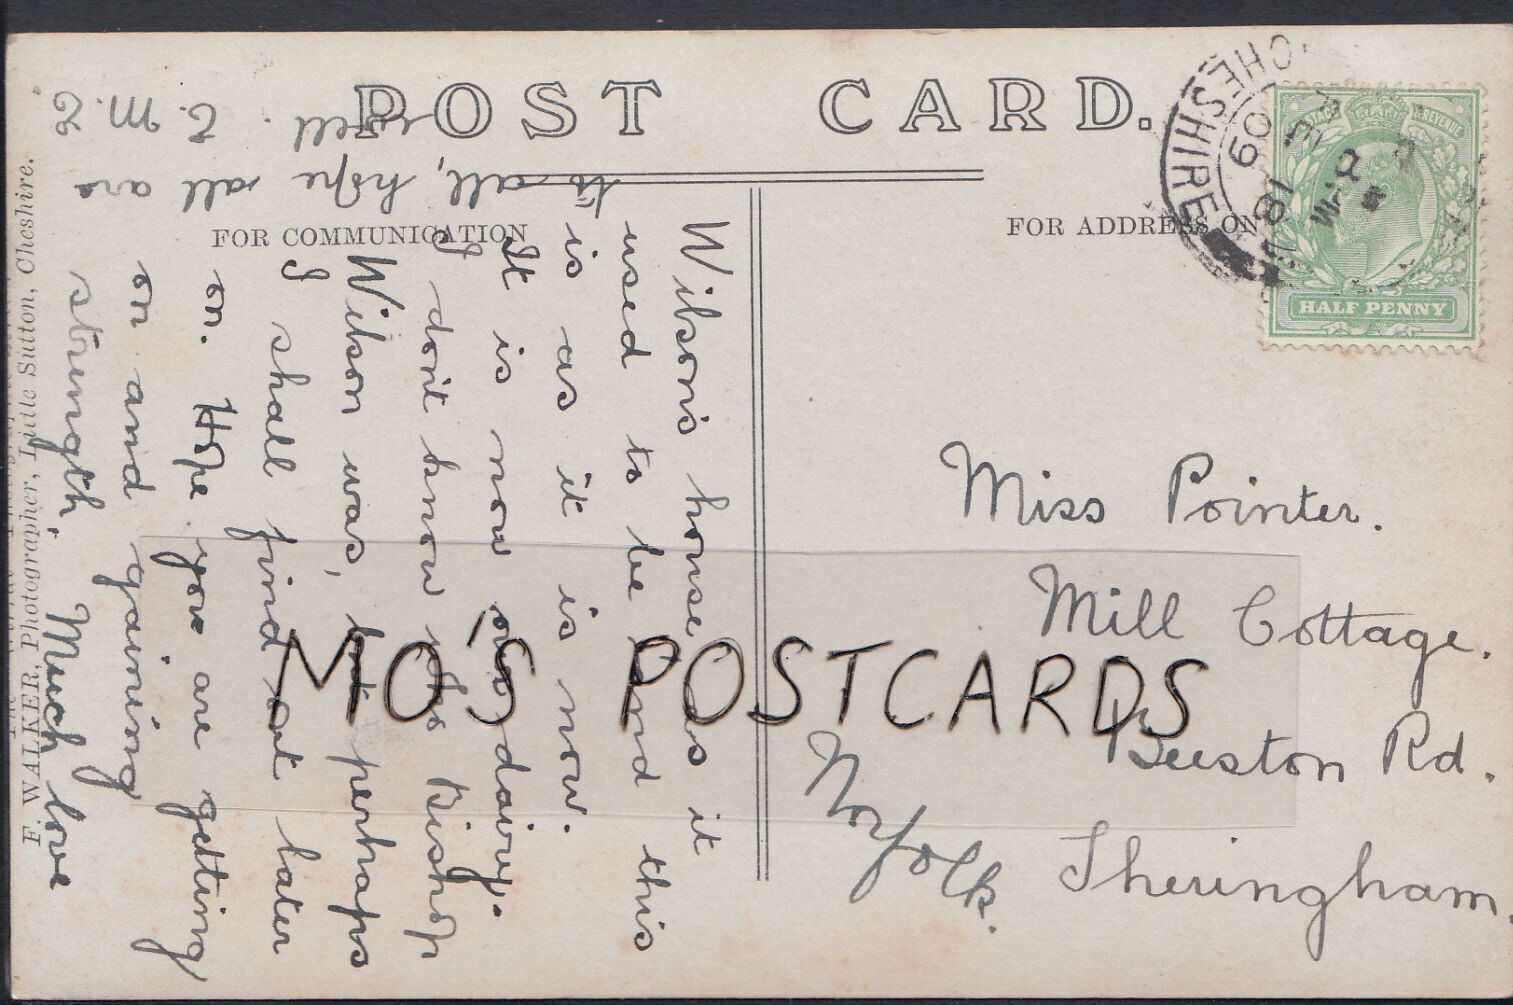 POST CARD.
FOR COMMUNICATION
FOR ADDRESS ON
CHESHIRE
09
HALF PENNY
REVENUE
Wilson's house as it
used to be and this
is as it is now.
It is now our dairy.
I don't know who Bishop
Wilson was, but perhaps
I shall find out later
on. Hope you are getting
on and gaining
strength. Much love
to all, hope all are
well. E. M. E.
Miss Pointer.
Mill Cottage.
Beeston Rd.
Sheringham.
Norfolk.
F. WALKER, Photographer, Little Sutton, Cheshire.
MO'S POSTCARDS